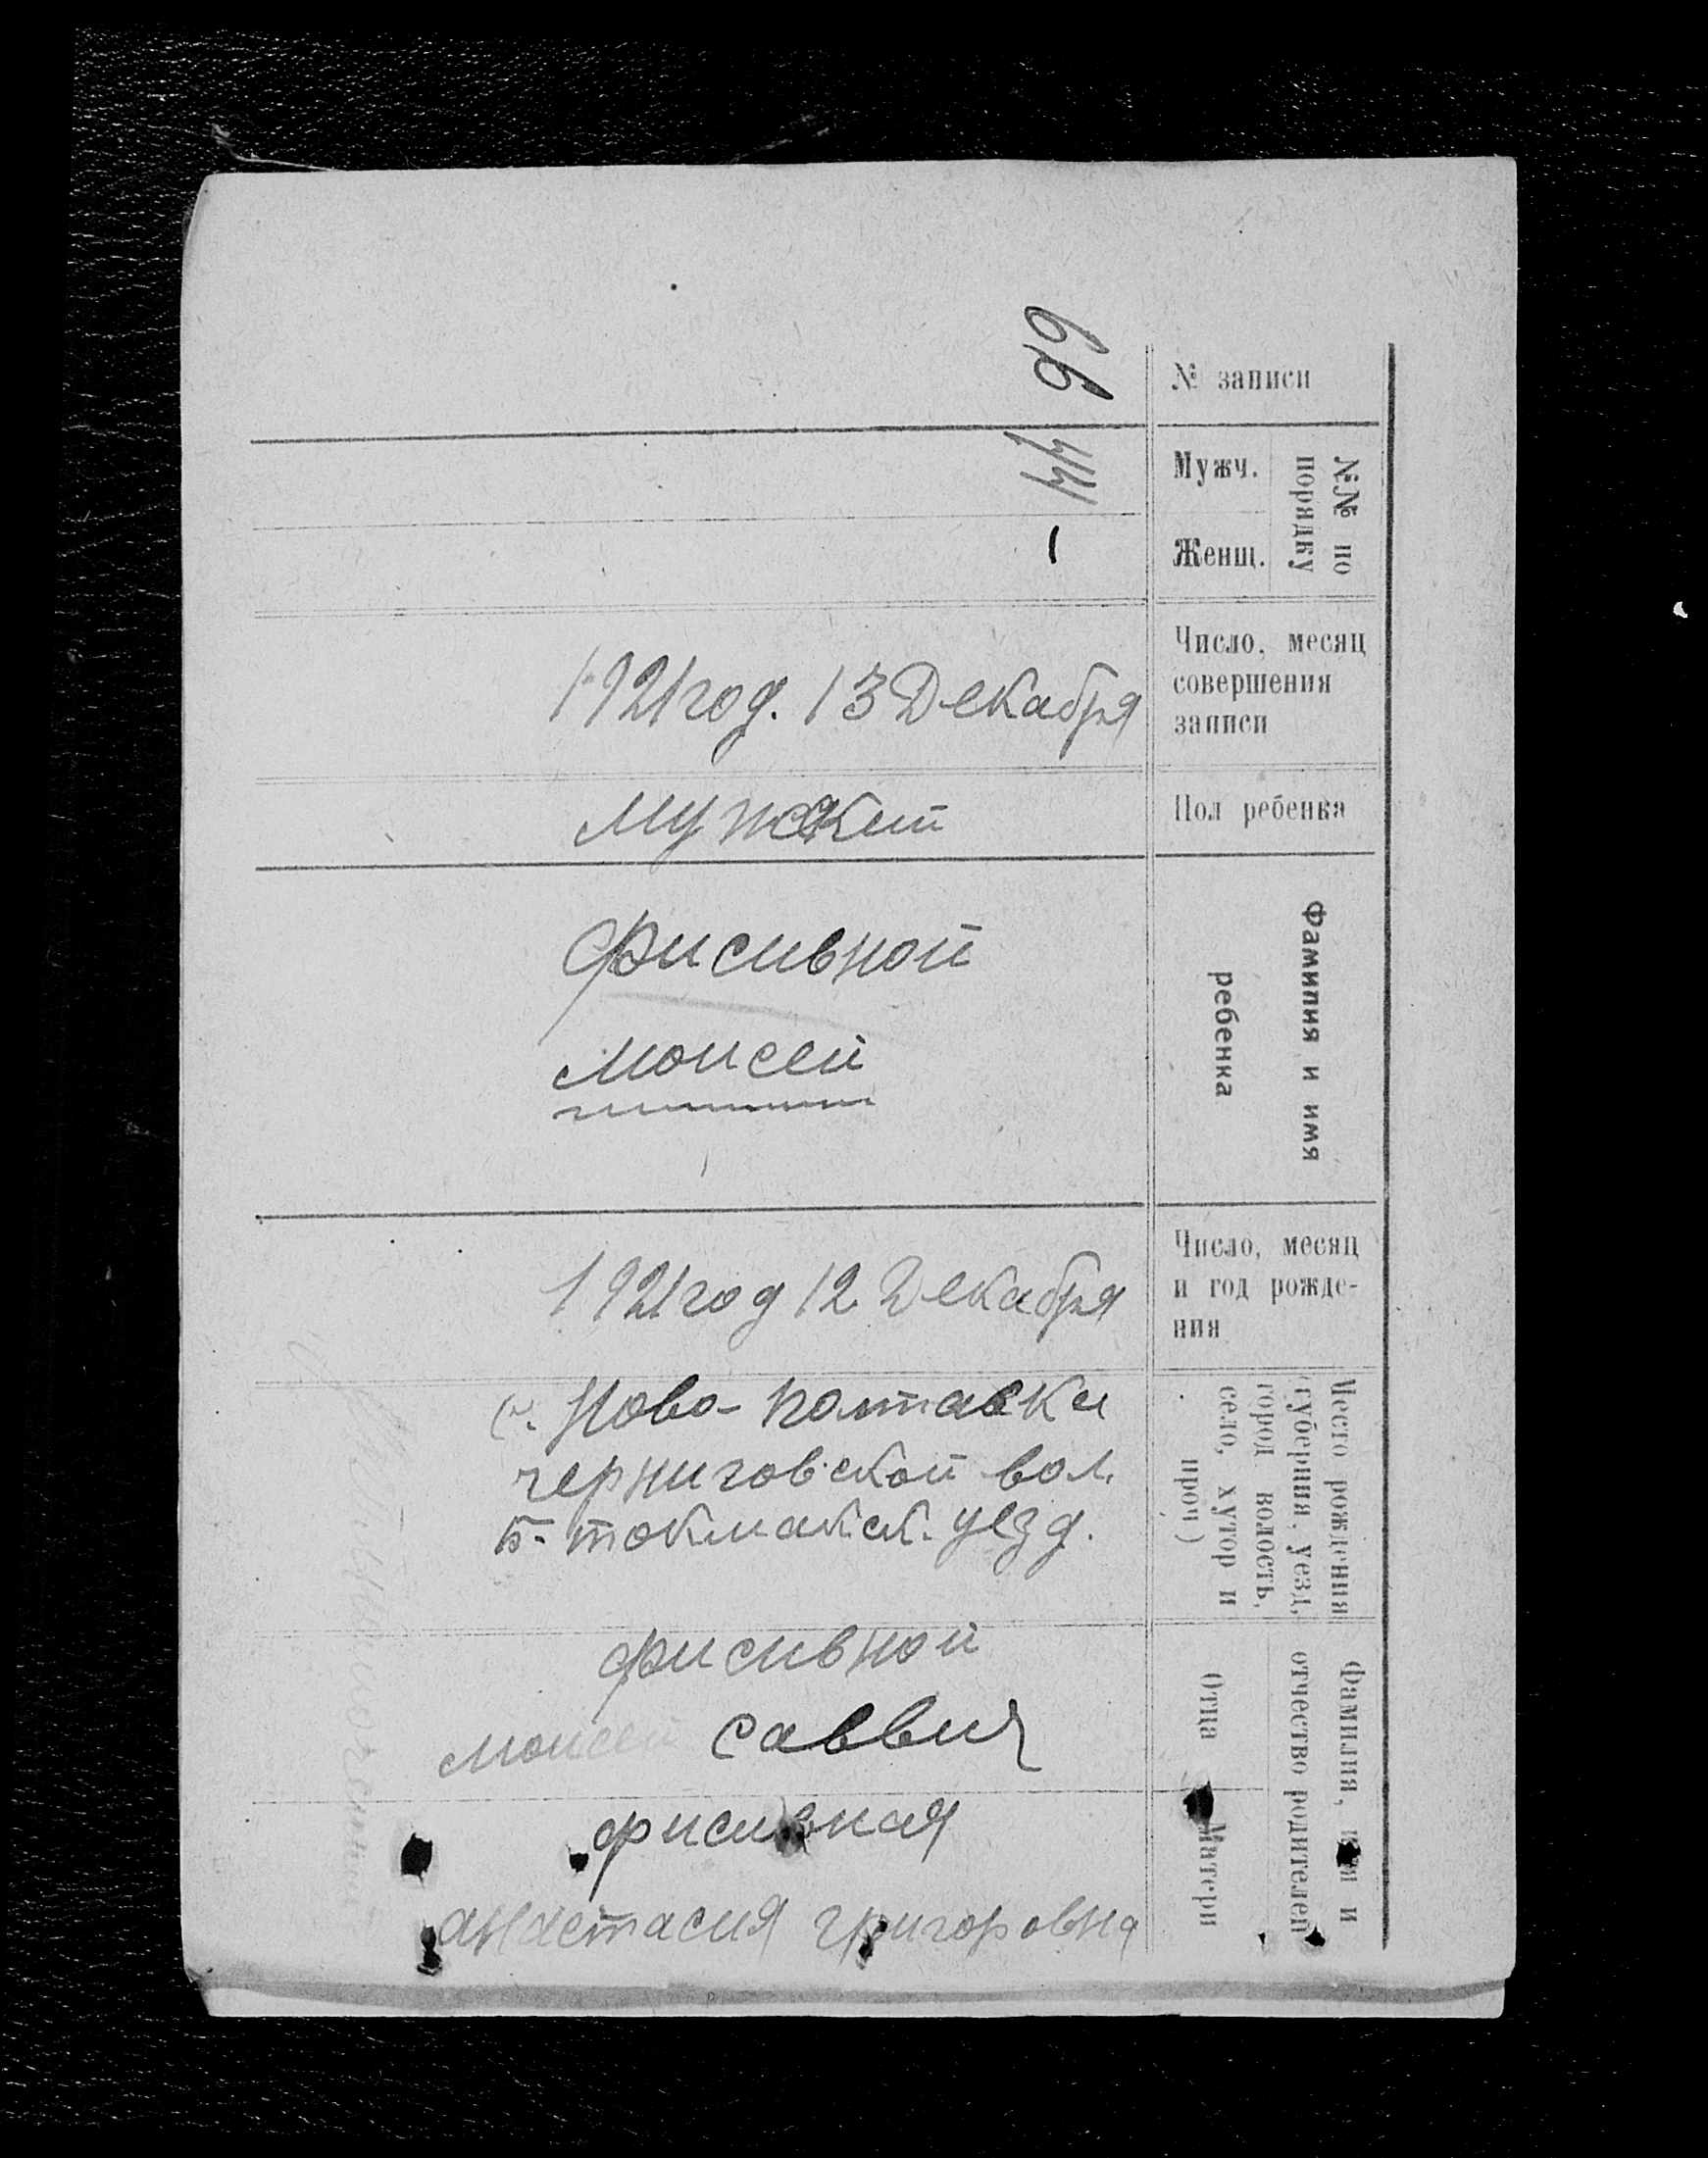 № записи
66
№№ по
порядку
Мужч.
44
Женщ.
–
Число, месяц
совершения
записи
1921 год. 13 Декабря
Пол ребенка
мужский
Фамилия и имя
ребенка
Фисивной
Моисей
Число, месяц
и год рожде-
ния
1921 год 12 Декабря
Место рождения
(губерния, уезд,
город волость,
село, хутор и
проч)
с. Ново-Полтавки
черниговской вол.
Б. токмакск. уезд.
Фамилия, имя и
отчество родителей
Отца
фисивной
моисей саввич
Матери
фисивная
анастасия григоровна